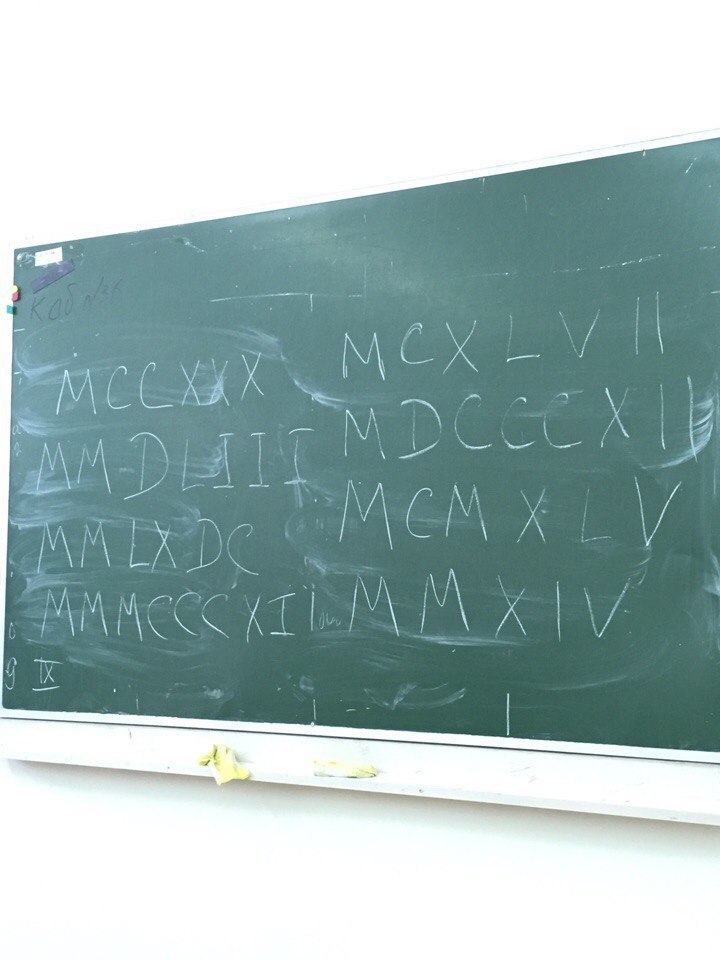 Каб
MCCXXX
MMDLIII
MMLXDC
MMMCCCXII
9 IX
MCXLVII
MDCCCXII
MCMXLV
MMXIV